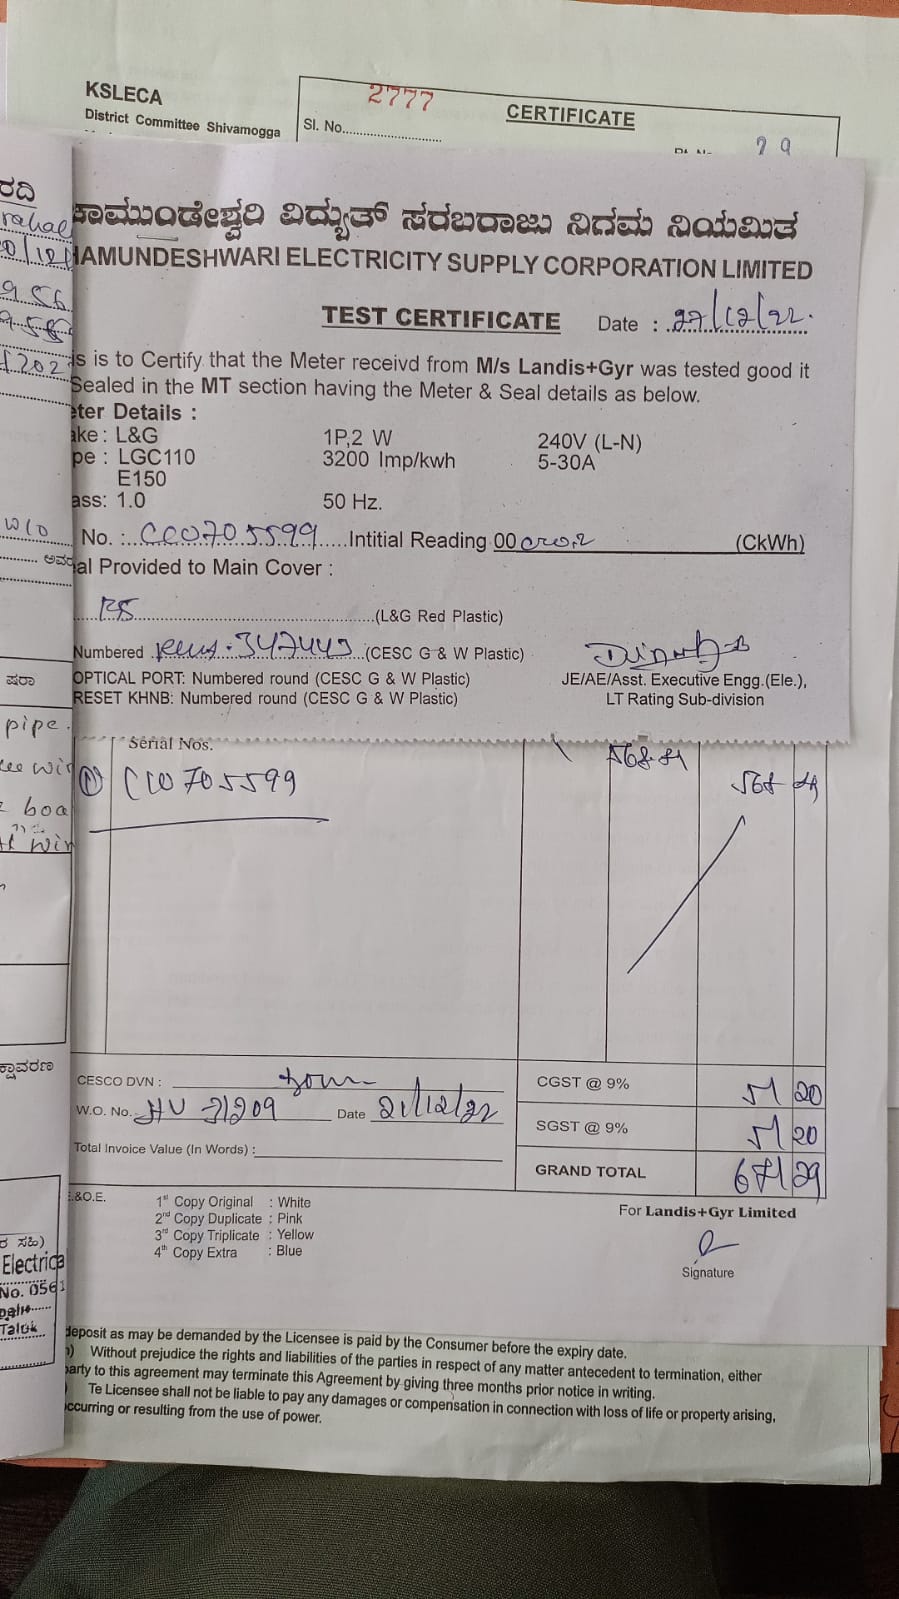 KSLECA
District Committee Shivamogga
2777
Sl. No.
CERTIFICATE
29
ರದಿ
ಚಾಮುಂಡೇಶ್ವರಿ ವಿದ್ಯುತ್ ಸರಬರಾಜು ನಿಗಮ ನಿಯಮಿತ
HAMUNDESHWARI ELECTRICITY SUPPLY CORPORATION LIMITED
TEST CERTIFICATE Date : 27/12/22.
is is to Certify that the Meter receivd from M/s Landis+Gyr was tested good it
Sealed in the MT section having the Meter & Seal details as below.
eter Details :
ake : L&G 1P,2 W 240V (L-N)
pe : LGC110 3200 Imp/kwh 5-30A
E150
ass: 1.0 50 Hz.
No. : CC0705599 Intitial Reading 00 (CkWh)
al Provided to Main Cover :
(L&G Red Plastic)
Numbered 347443 (CESC G & W Plastic)
OPTICAL PORT: Numbered round (CESC G & W Plastic) JE/AE/Asst. Executive Engg.(Ele.),
RESET KHNB: Numbered round (CESC G & W Plastic) LT Rating Sub-division
ಷರಾ
pipe.
Serial Nos.
1) CC0705599
CESCO DVN :
W.O. No. Date 21/12/22
Total Invoice Value (In Words) :
CGST @ 9% 51 20
SGST @ 9% 51 20
GRAND TOTAL 671 29
E.&O.E.
1st Copy Original : White
2nd Copy Duplicate : Pink
3rd Copy Triplicate : Yellow
4th Copy Extra : Blue
For Landis+Gyr Limited
Signature
Electrica
No. 0561
Taluk
deposit as may be demanded by the Licensee is paid by the Consumer before the expiry date.
) Without prejudice the rights and liabilities of the parties in respect of any matter antecedent to termination, either
party to this agreement may terminate this Agreement by giving three months prior notice in writing.
Te Licensee shall not be liable to pay any damages or compensation in connection with loss of life or property arising,
occurring or resulting from the use of power.